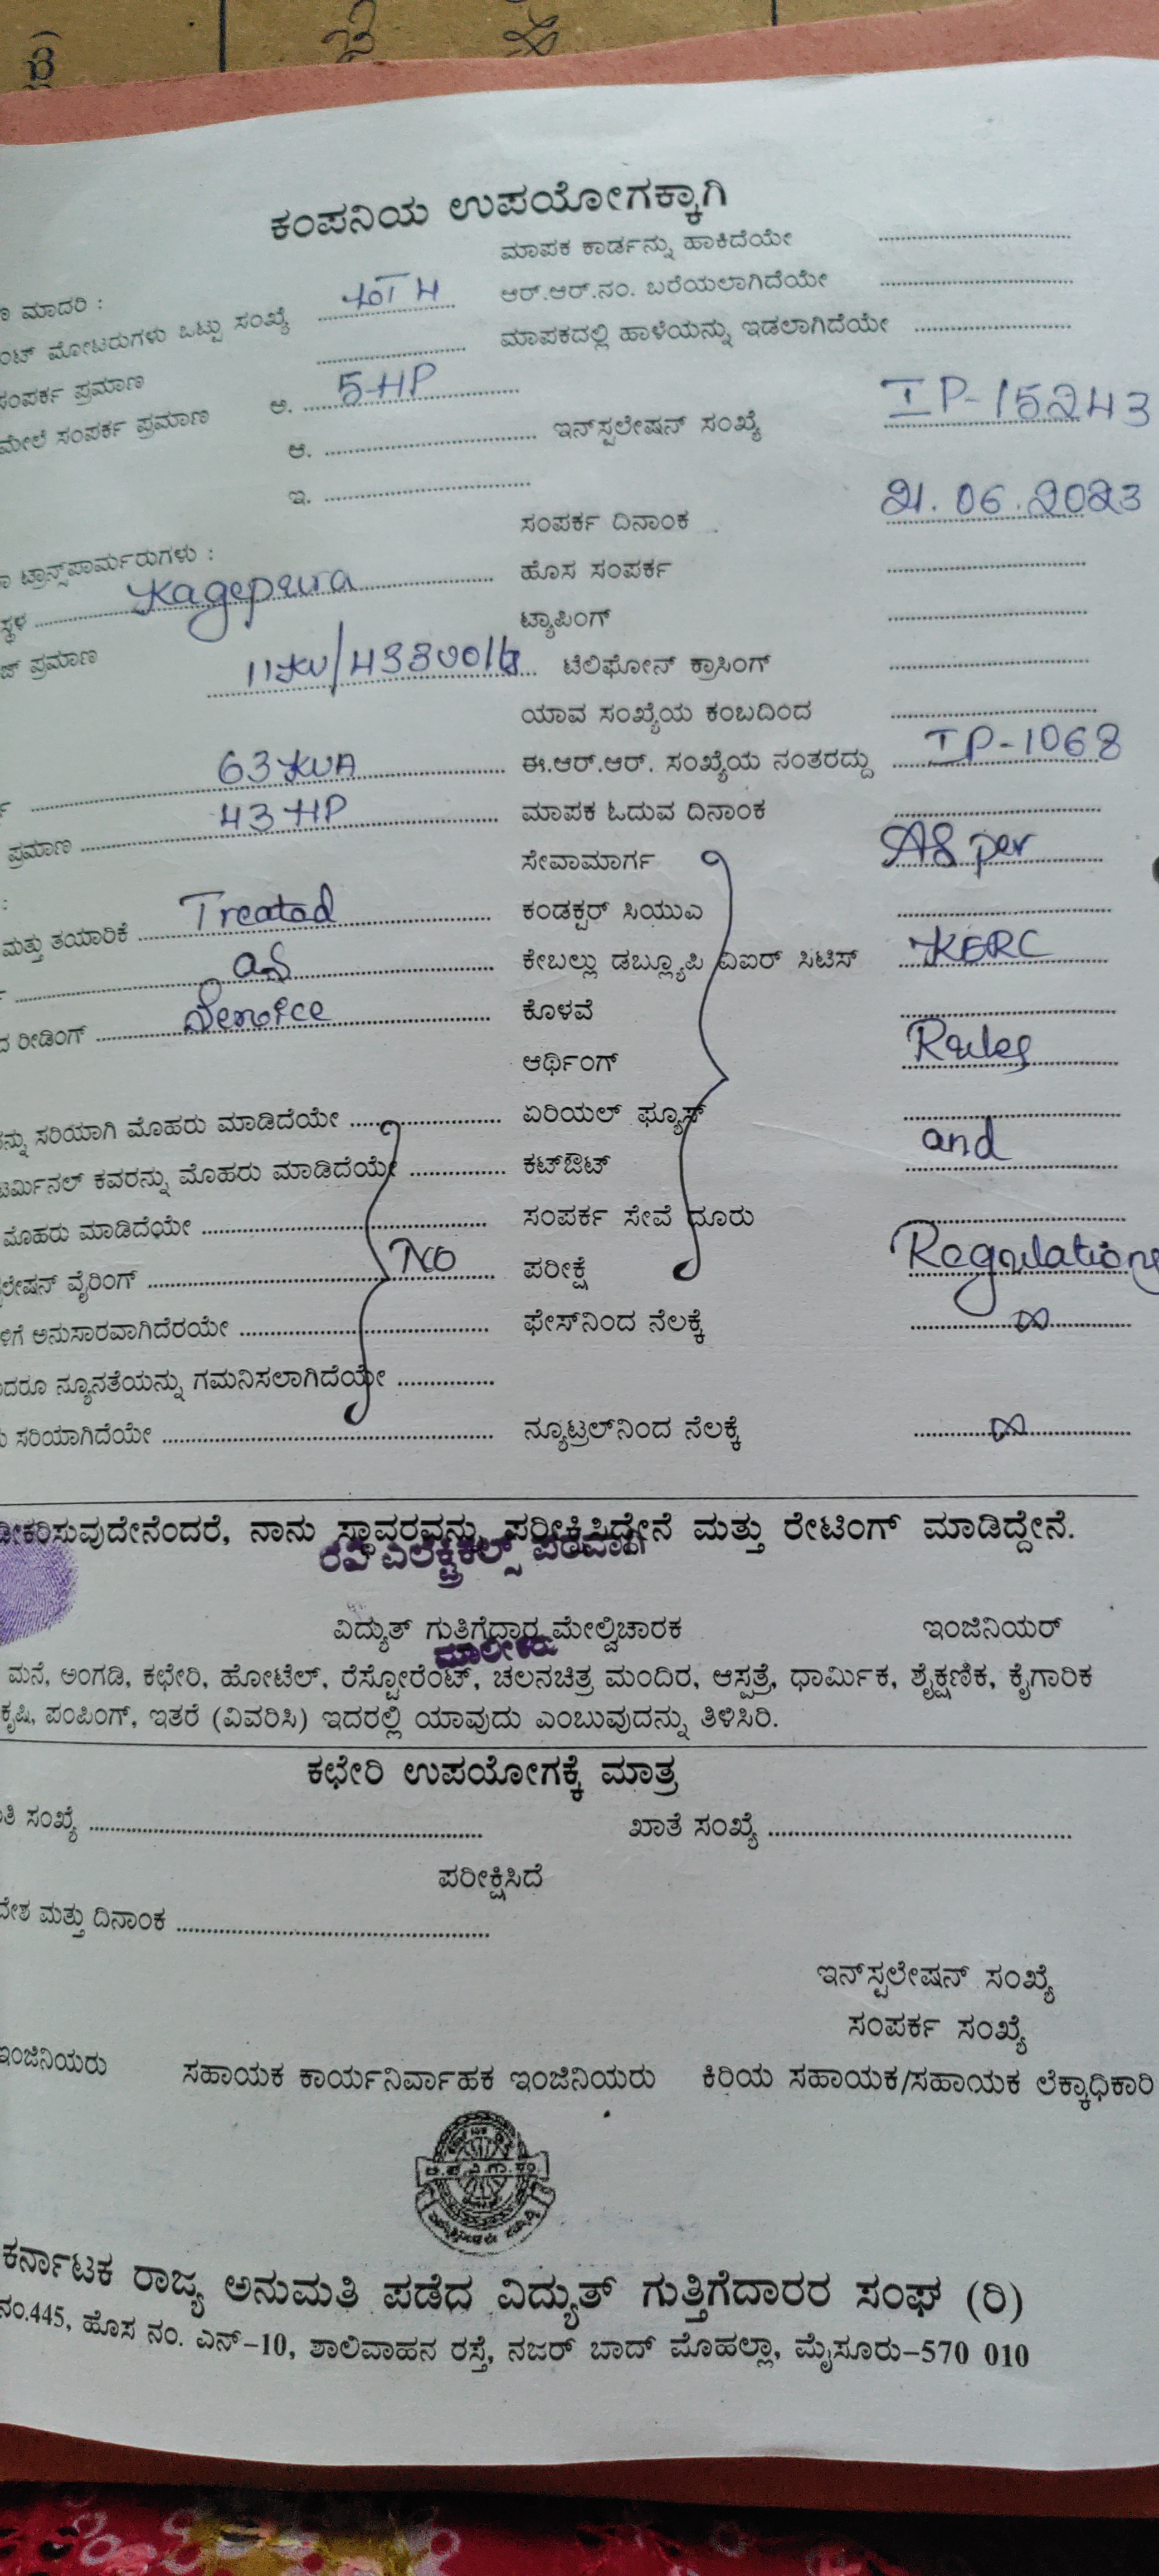 ಕಂಪನಿಯ ಉಪಯೋಗಕ್ಕಾಗಿ
ಮಾಪಕ ಕಾರ್ಡನ್ನು ಹಾಕಿದೆಯೇ
ಮಾದರಿ :
ಆರ್.ಆರ್.ನಂ. ಬರೆಯಲಾಗಿದೆಯೇ
ಮೋಟರುಗಳು ಒಟ್ಟು ಸಂಖ್ಯೆ
ಮಾಪಕದಲ್ಲಿ ಹಾಳೆಯನ್ನು ಇಡಲಾಗಿದೆಯೇ
ಸಂಪರ್ಕ ಪ್ರಮಾಣ ಅ. 5 HP
ಮೇಲೆ ಸಂಪರ್ಕ ಪ್ರಮಾಣ ಆ. ಇನ್‌ಸ್ಟಲೇಷನ್ ಸಂಖ್ಯೆ IP-15243
ಇ.
ಸಂಪರ್ಕ ದಿನಾಂಕ 21.06.2023
ಟ್ರಾನ್ಸ್‌ಪಾರ್ಮರುಗಳು :
ಸ್ಥಳ Kagepura ಹೊಸ ಸಂಪರ್ಕ
ಟ್ಯಾಪಿಂಗ್
ಪ್ರಮಾಣ 11KV/433volts ಟೆಲಿಫೋನ್ ಕ್ರಾಸಿಂಗ್
ಯಾವ ಸಂಖ್ಯೆಯ ಕಂಬದಿಂದ
63 KVA ಈ.ಆರ್.ಆರ್. ಸಂಖ್ಯೆಯ ನಂತರದ್ದು IP-1068
ಪ್ರಮಾಣ 43 HP ಮಾಪಕ ಓದುವ ದಿನಾಂಕ
ಸೇವಾಮಾರ್ಗ AS per
ಮತ್ತು ತಯಾರಿಕೆ Treated ಕಂಡಕ್ಟರ್ ಸಿಯುಎ
as ಕೇಬಲ್ಲು ಡಬ್ಲ್ಯೂಪಿ ವಿಐಆರ್ ಸಿಟಿಸ್ KERC
ರೀಡಿಂಗ್ Service ಕೊಳವೆ
ಆರ್ಥಿಂಗ್ Rules
ಸರಿಯಾಗಿ ಮೊಹರು ಮಾಡಿದೆಯೇ ಏರಿಯಲ್ ಫ್ಯೂಸ್
ಕವರನ್ನು ಮೊಹರು ಮಾಡಿದೆಯೇ ಕಟ್‌ಔಟ್ and
ಮೊಹರು ಮಾಡಿದೆಯೇ ಸಂಪರ್ಕ ಸೇವೆ ದೂರು
ವೈರಿಂಗ್ NO ಪರೀಕ್ಷೆ Regulations
ಅನುಸಾರವಾಗಿದೆರಯೇ ಫೇಸ್‌ನಿಂದ ನೆಲಕ್ಕೆ ∞
ನ್ಯೂನತೆಯನ್ನು ಗಮನಿಸಲಾಗಿದೆಯೇ
ಸರಿಯಾಗಿದೆಯೇ ನ್ಯೂಟ್ರಲ್‌ನಿಂದ ನೆಲಕ್ಕೆ ∞
ನಾನು ಸ್ಥಾವರವನ್ನು ಪರೀಕ್ಷಿಸಿದ್ದೇನೆ ಮತ್ತು ರೇಟಿಂಗ್ ಮಾಡಿದ್ದೇನೆ.
ರವಿ ಎಲೆಕ್ಟ್ರಿಕಲ್ಸ್ ಪರವಾಗಿ
ವಿದ್ಯುತ್ ಗುತ್ತಿಗೆದಾರ ಮೇಲ್ವಿಚಾರಕ ಇಂಜಿನಿಯರ್
ಮಾಲೀಕರು
ಮನೆ, ಅಂಗಡಿ, ಕಛೇರಿ, ಹೋಟೆಲ್, ರೆಸ್ಟೋರೆಂಟ್, ಚಲನಚಿತ್ರ ಮಂದಿರ, ಆಸ್ಪತ್ರೆ, ಧಾರ್ಮಿಕ, ಶೈಕ್ಷಣಿಕ, ಕೈಗಾರಿಕ
ಕೃಷಿ, ಪಂಪಿಂಗ್, ಇತರೆ (ವಿವರಿಸಿ) ಇದರಲ್ಲಿ ಯಾವುದು ಎಂಬುವುದನ್ನು ತಿಳಿಸಿರಿ.
ಕಛೇರಿ ಉಪಯೋಗಕ್ಕೆ ಮಾತ್ರ
ಸಂಖ್ಯೆ ಖಾತೆ ಸಂಖ್ಯೆ
ಪರೀಕ್ಷಿಸಿದೆ
ಮತ್ತು ದಿನಾಂಕ
ಇನ್‌ಸ್ಟಲೇಷನ್ ಸಂಖ್ಯೆ
ಸಂಪರ್ಕ ಸಂಖ್ಯೆ
ಇಂಜಿನಿಯರು ಸಹಾಯಕ ಕಾರ್ಯನಿರ್ವಾಹಕ ಇಂಜಿನಿಯರು ಕಿರಿಯ ಸಹಾಯಕ/ಸಹಾಯಕ ಲೆಕ್ಕಾಧಿಕಾರಿ
ಕರ್ನಾಟಕ ರಾಜ್ಯ ಅನುಮತಿ ಪಡೆದ ವಿದ್ಯುತ್ ಗುತ್ತಿಗೆದಾರರ ಸಂಘ (ರಿ)
ನಂ.445, ಹೊಸ ನಂ. ಎನ್-10, ಶಾಲಿವಾಹನ ರಸ್ತೆ, ನಜರ್ ಬಾದ್ ಮೊಹಲ್ಲಾ, ಮೈಸೂರು-570 010